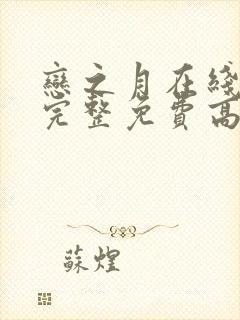 戀之月在綫
完整免費高
蘇煌